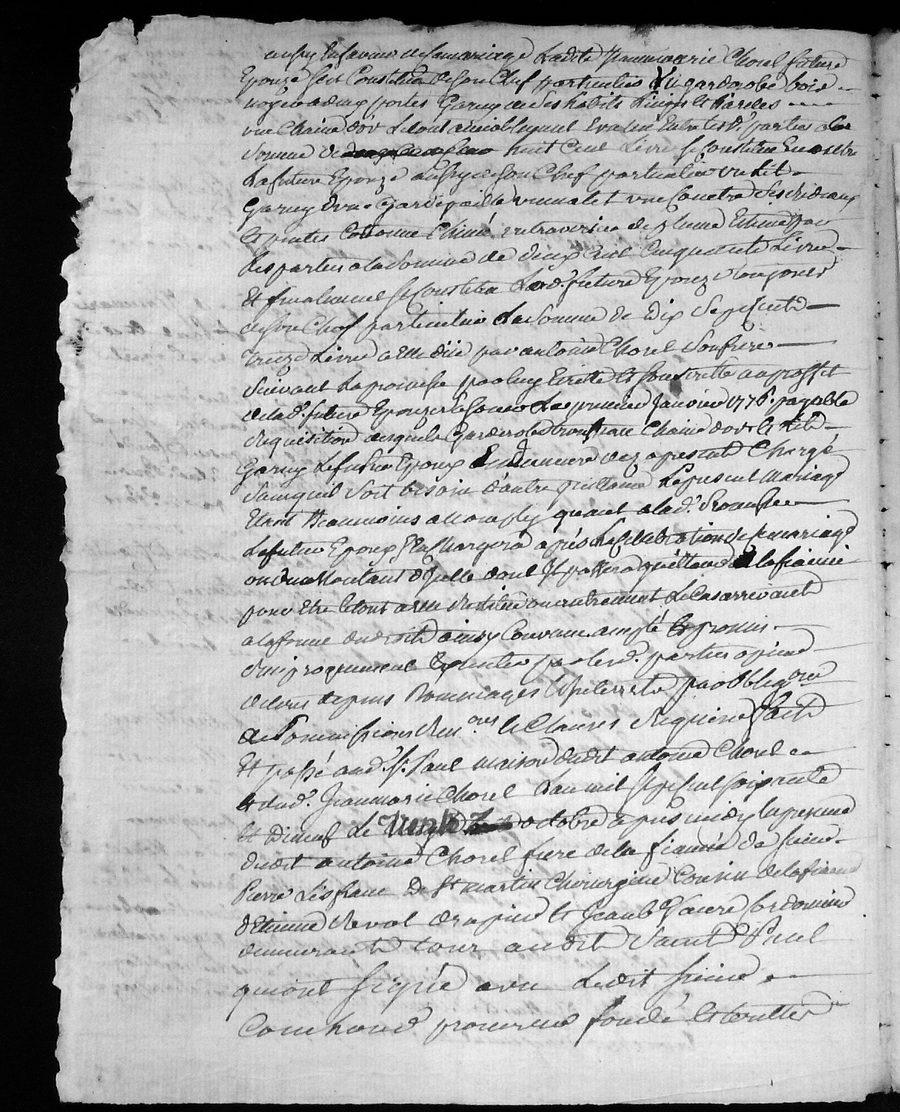 aussy En faveur de ce mariage Ladite Jeanmarie Chorel future
Epouze sest Constituée de Son Chef particulier Un garderobe bois
noyer a deux portes Garny de Ses habits Linges Et hardes
une Chaine d'or Le tout amiablement Evalué Entre les d. parties a la
Somme de huit Cent Livres Se Constitue En outre
La future Epouze aussy de Son Chef particulier un lit
Garny d'une Gardepaille une et une Couetre Ses rideaux
Et pentes Cotonne traversier de plume Estimé par
Les parties a la Somme de deux Cent Cinquante Livres
Et finalement Se Constitue Lad. future Epouze toujours
de Son Chef particulier La Somme de Dix Sept Cent
treize Livres a Elle düe par antoine Chorel Son frere
Suivant La promesse par luy Ecritte Et Souscritte au proffit
de lad. future Epouze Le premier Janvier 1776. payable
a requisition desquels Garderobe trousseau Chaine d'or Et Lit
Garny Le futur Epoux Demeure dez a present Chargé
Sans quil Soit besoin d'autre quittance Le present Mariage
Etant Neanmoins accomply quant a lad. promesse
Le futur Epoux Se Chargera après La Celebration de ce mariage
ou du Montant d'icelle dont Il passera quittance a la fiancée
pour Etre Le tout a Elle rendu ou autrement Le Cas arrivant
a la forme du droit ainsy Convenu accepté Et promis
reciproquement Executer par lesd. parties a peine
de tous depens Dommages Interrets par Obligons
de Soumissions Renons Et Clauses Requises fait
Et passé aud. St. Paul maison dudit antoine Chorel
Et de lad. Jeanmarie Chorel L'an mil Sept Cent Soixante
Et Dix neuf Le Vingt octobre apres midy En presence
dudit antoine Chorel frere de la fiancée de Sieur
Pierre Lisfranc De St martin Chirurgien Cousin de la fiancée
d'Etienne et Jean
demeurants tous audit Saint Paul
qui ont Signée avec Ledit Sieur
procureur fondé Et